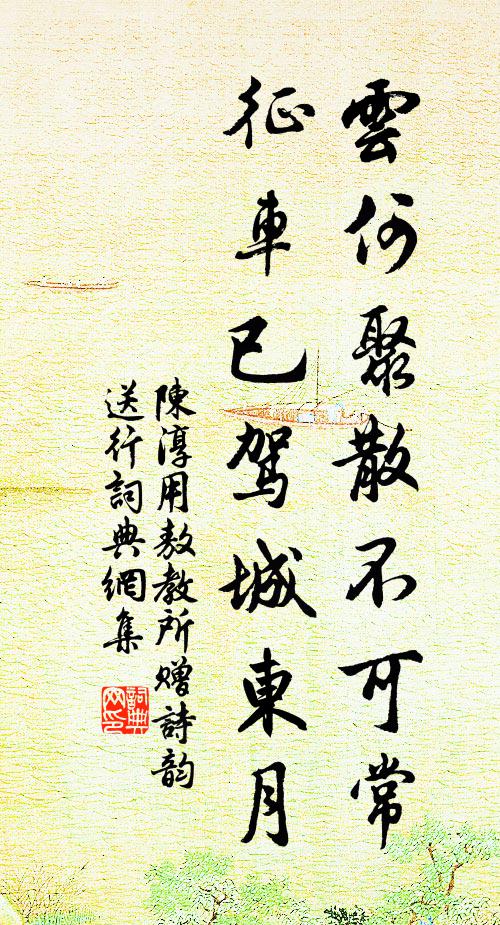 雲何聚散不可常
征車已駕城東月
陳淳用敖教所贈詩韵
送行詞典網集
詞典
网印